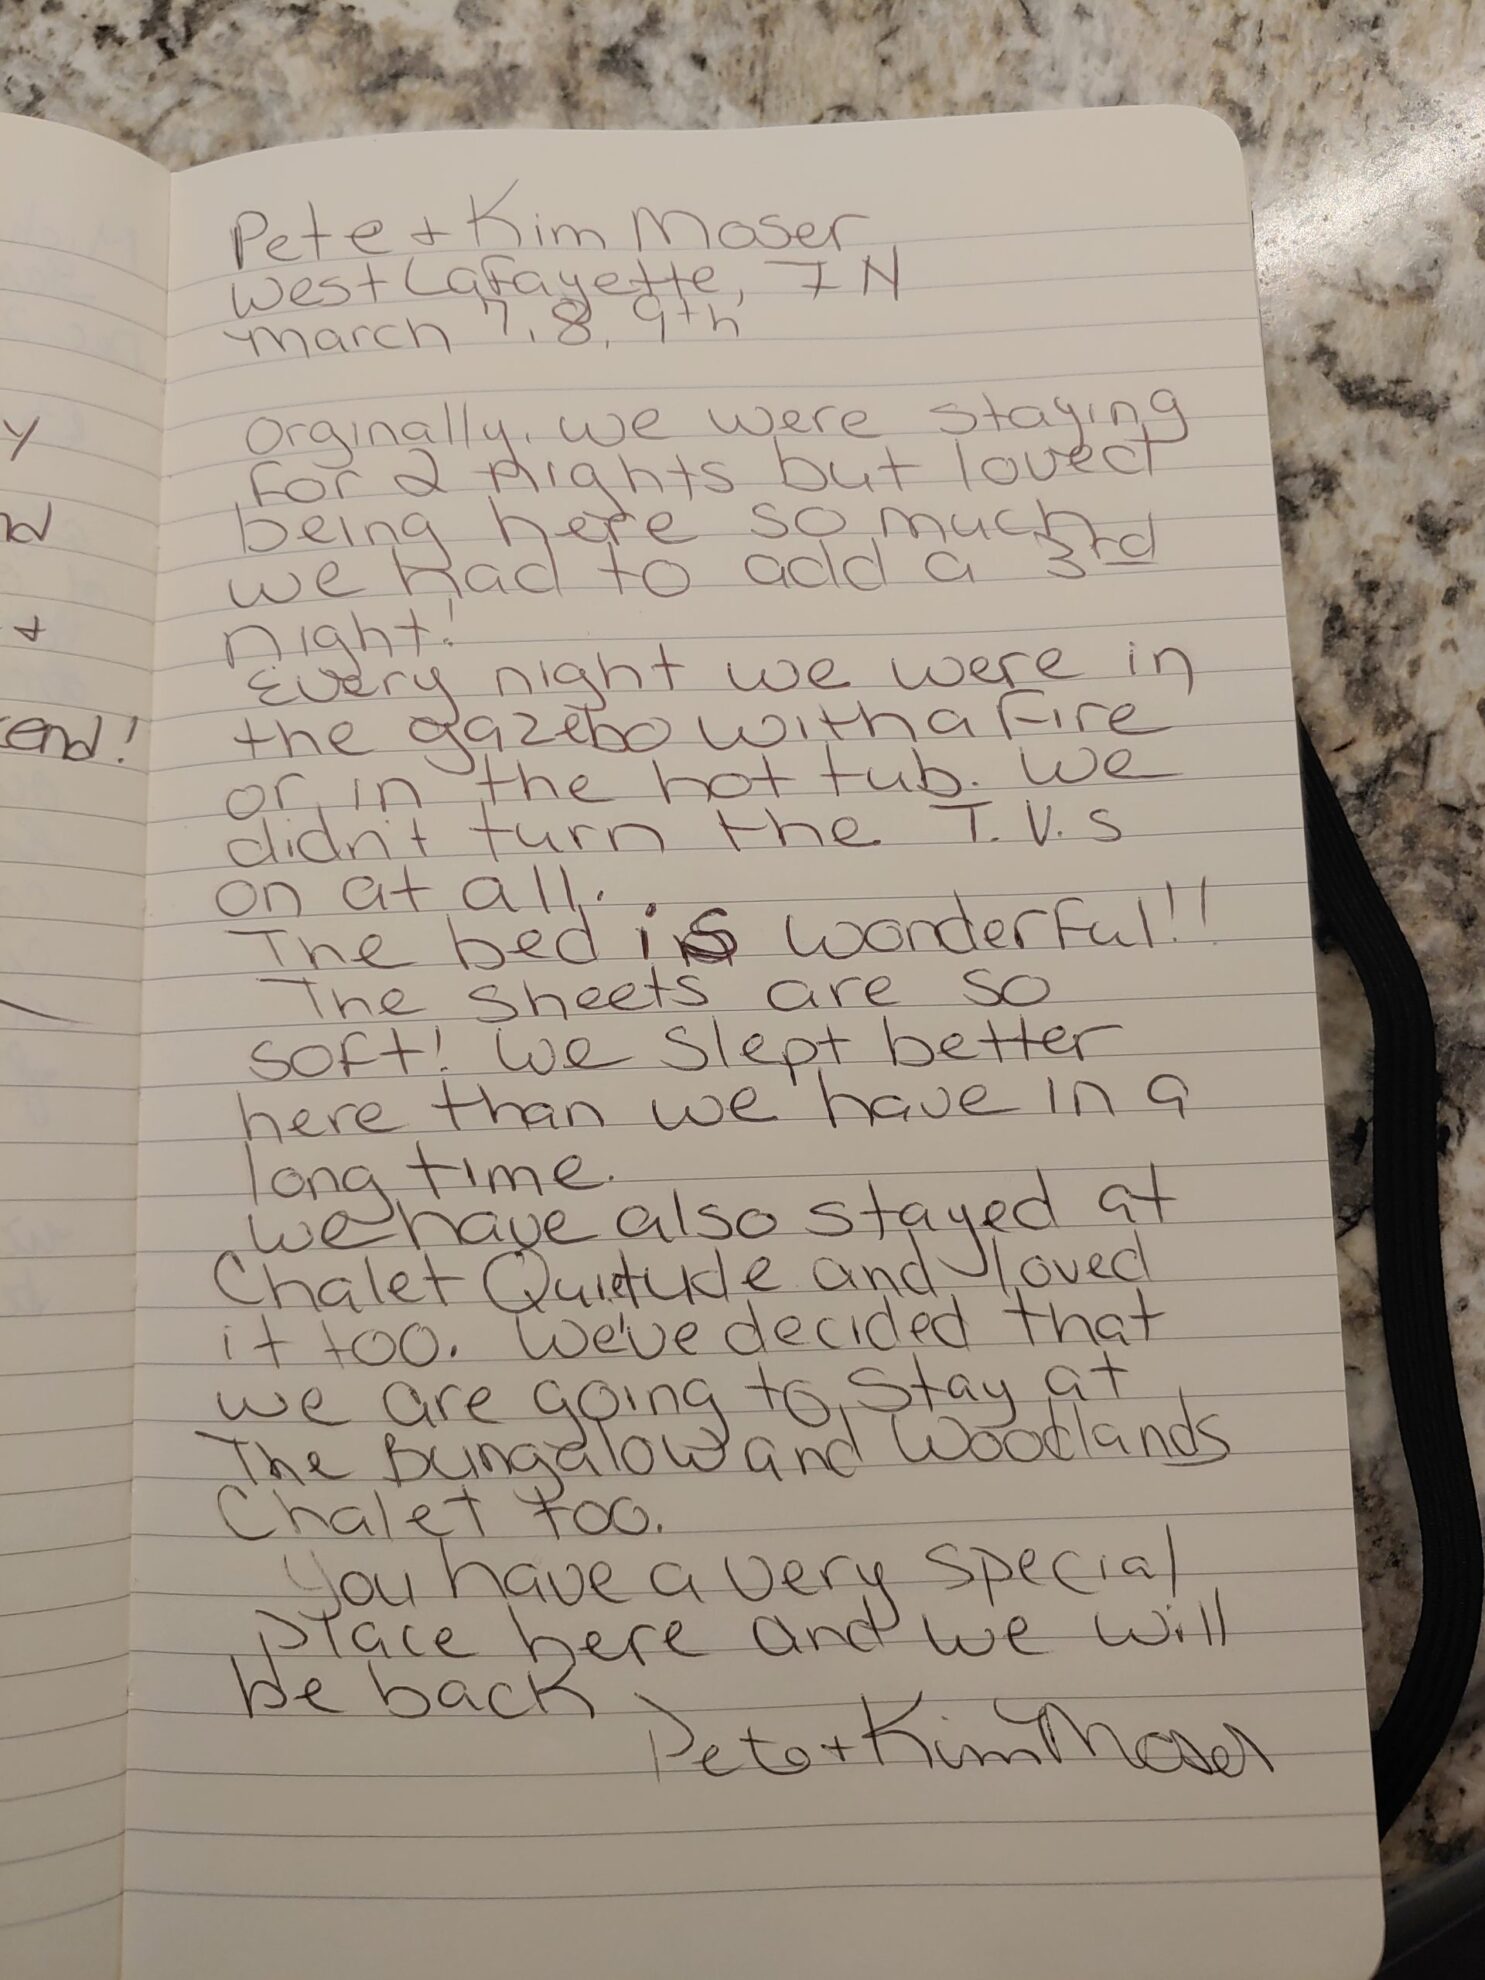 y
nd
+
end!
Pete + Kim Moser
West Lafayette, IN
March 7, 8, 9th
Orginally, we were staying
for 2 nights but loved
being here so much
we had to add a 3rd
night!
Every night we were in
the gazebo with a fire
or in the hot tub. We
didn't turn the T.V.s
on at all.
The bed is wonderful!!
The sheets are so
soft! We slept better
here than we have in a
long time.
We have also stayed at
Chalet Quietude and loved
it too. We've decided that
we are going to stay at
The Bungalow and Woodlands
Chalet too.
You have a very special
place here and we will
be back
Pete + Kim Moser